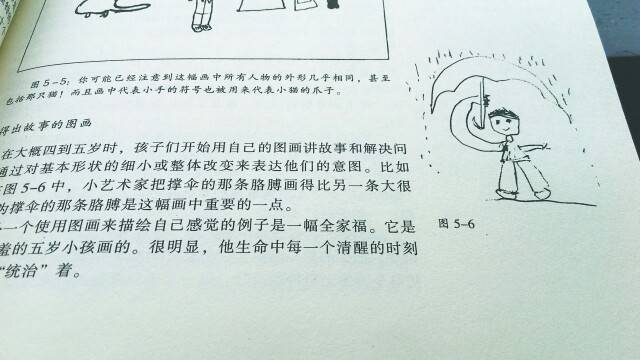 图5-5：你可能已经注意到这幅画中所有人物的外形几乎相同，甚至
包括那只猫！而且画中代表小手的符号也被用来代表小猫的爪子。
得出故事的图画
在大概四到五岁时，孩子们开始用自己的图画讲故事和解决问
通过对基本形状的细小或整体改变来表达他们的意图。比如
图5-6中，小艺术家把撑伞的那条胳膊画得比另一条大很
为撑伞的那条胳膊是这幅画中重要的一点。
一个使用图画来描绘自己感觉的例子是一幅全家福。它是
羞的五岁小孩画的。很明显，他生命中每一个清醒的时刻
“统治”着。
图5-6